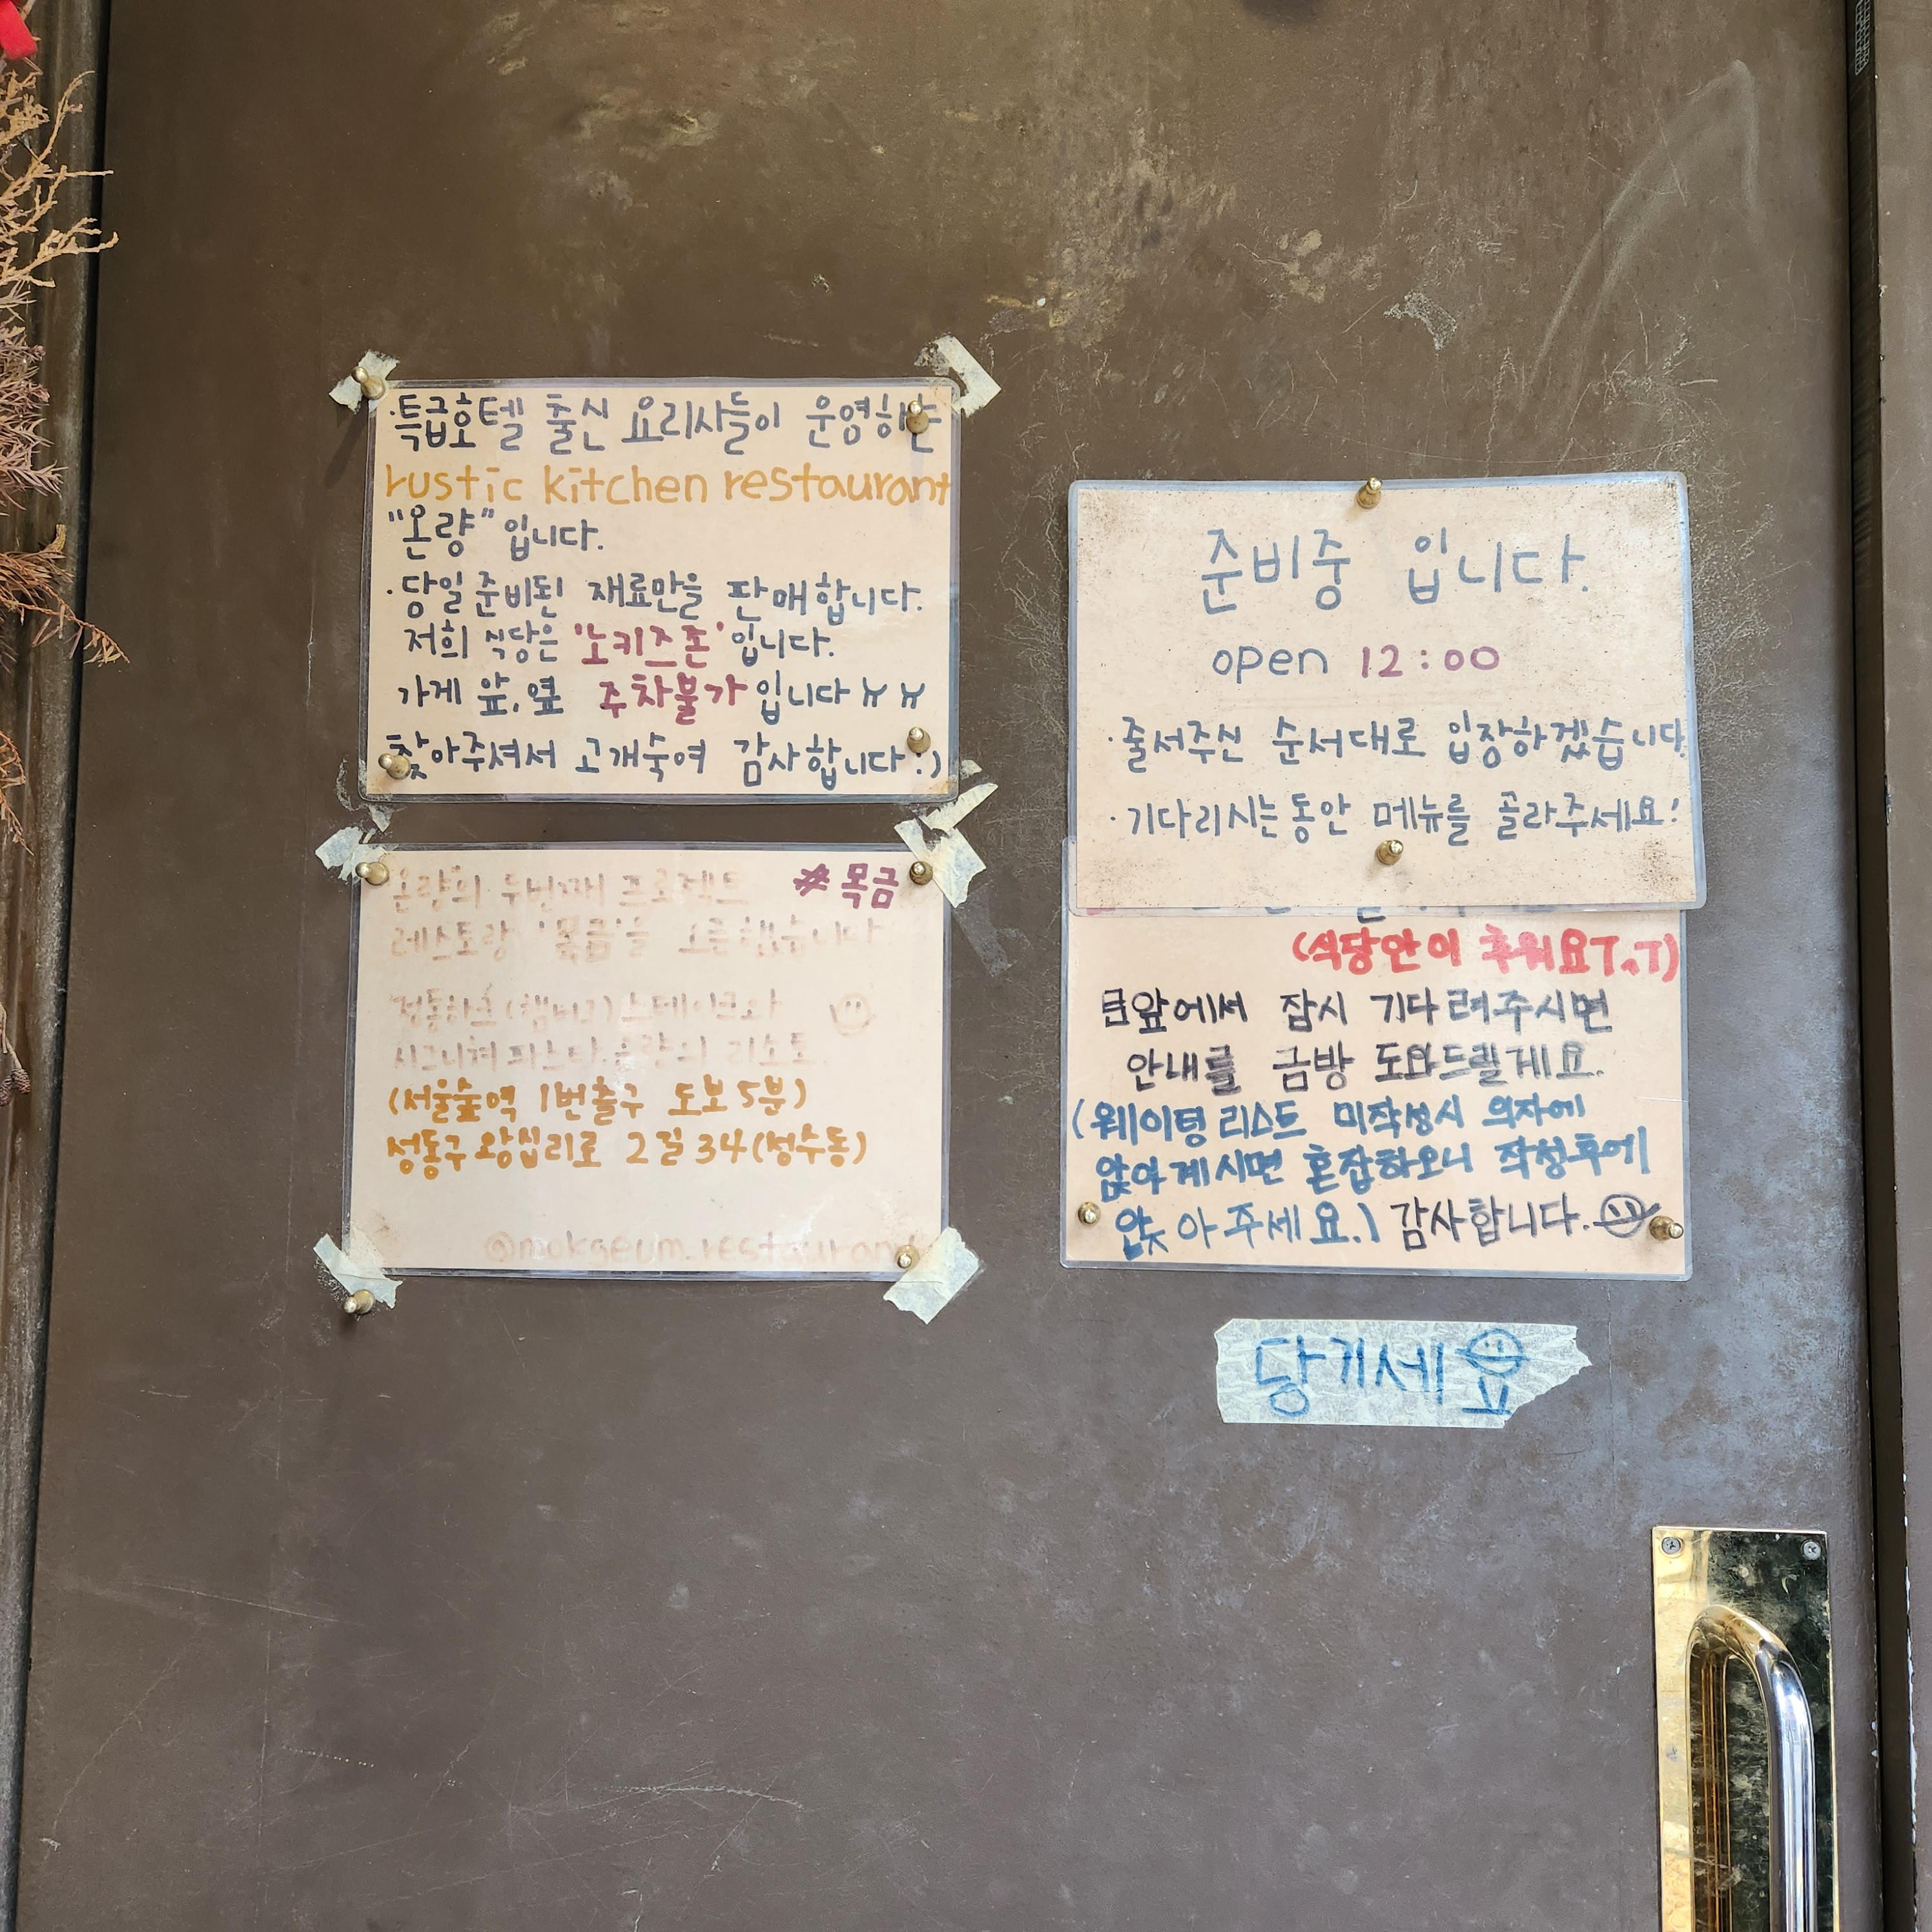 ·특급호텔 출신 요리사들이 운영하는
rustic kitchen restaurant
"온량" 입니다.
·당일 준비된 재료만을 판매합니다.
저희 식당은 '노키즈존' 입니다.
가게 앞, 옆 주차불가 입니다ㅠㅠ
찾아주셔서 고개숙여 감사합니다:)
온량의 두번째 프로젝트 #목금
레스토랑 '목금'을 오픈했습니다
스테이크와
시그니쳐 파스타, 온량의 리소토
(서울숲역 1번출구 도보 5분)
성동구 왕십리로 2길 34 (성수동)
@mokgeum.restaurant
준비중 입니다.
open 12:00
·줄서주신 순서대로 입장하겠습니다
·기다리시는동안 메뉴를 골라주세요!
(식당안이 추워요T^T)
문앞에서 잠시 기다려주시면
안내를 금방 도와드릴게요.
(웨이팅 리스트 미작성시 의자에
앉아계시면 혼잡하오니 작성후에
앉아주세요.) 감사합니다.
당기세요